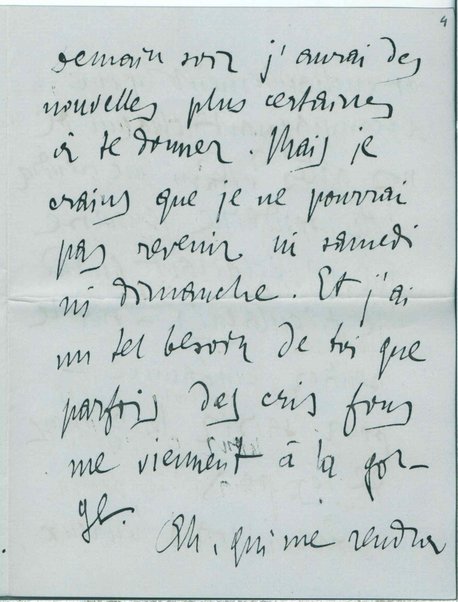 4
Demain soir j'aurai des
nouvelles plus certaines
à te donner. Mais je
crains que je ne pourrai
pas revenir ni samedi
ni dimanche. Et j'ai
un tel besoin de toi que
parfois des cris fous
me viennent à la gor-
ge.
Oh, qui me rendra